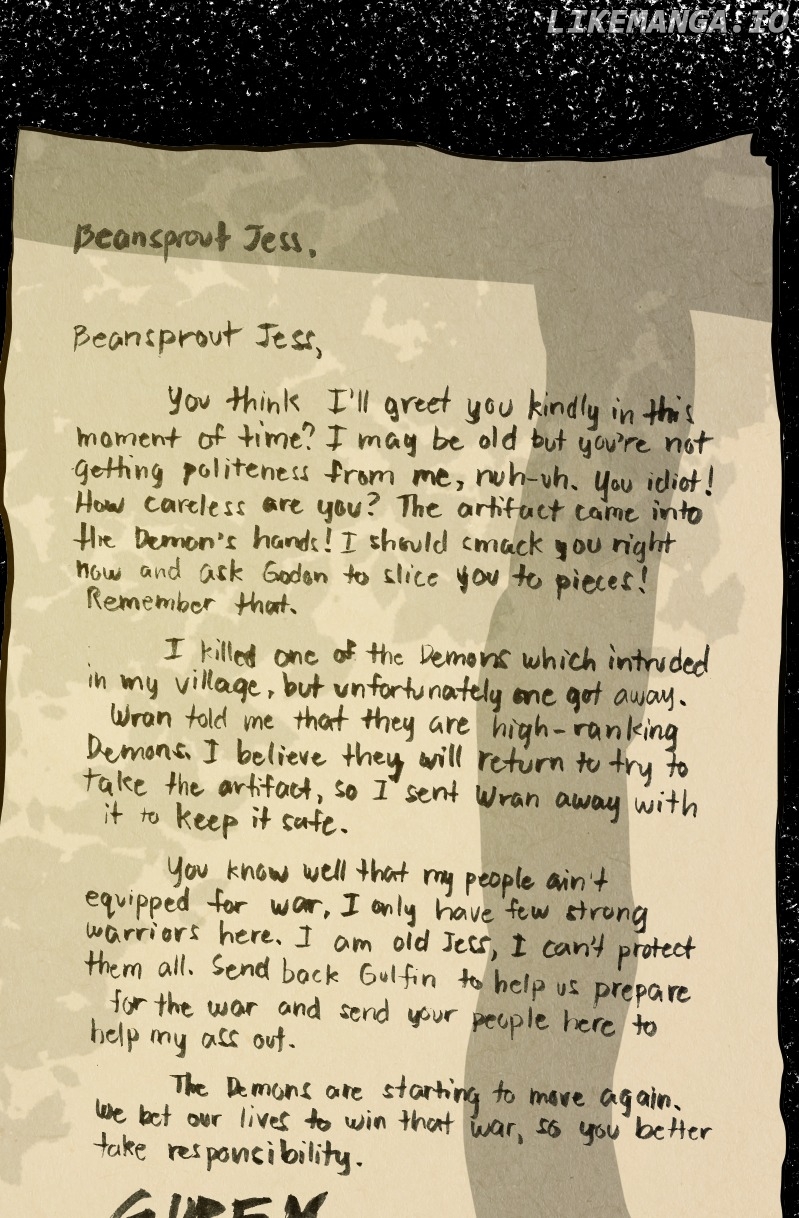 LIKEMANGA.IO
Beansprout Jess,
Beansprout Jess,
You think I'll greet you kindly in this
moment of time? I may be old but you're not
getting politeness from me, nuh-uh. You idiot!
How careless are you? The artifact came into
the Demon's hands! I should smack you right
now and ask Godon to slice you to pieces!
Remember that.
I killed one of the Demons which intruded
in my village, but unfortunately one got away.
Wran told me that they are high-ranking
Demons. I believe they will return to try to
take the artifact, so I sent Wran away with
it to keep it safe.
You know well that my people ain't
equipped for war, I only have few strong
warriors here. I am old Jess, I can't protect
them all. Send back Gulfin to help us prepare
for the war and send your people here to
help my ass out.
The Demons are starting to move again.
We bet our lives to win that war, so you better
take responcibility.